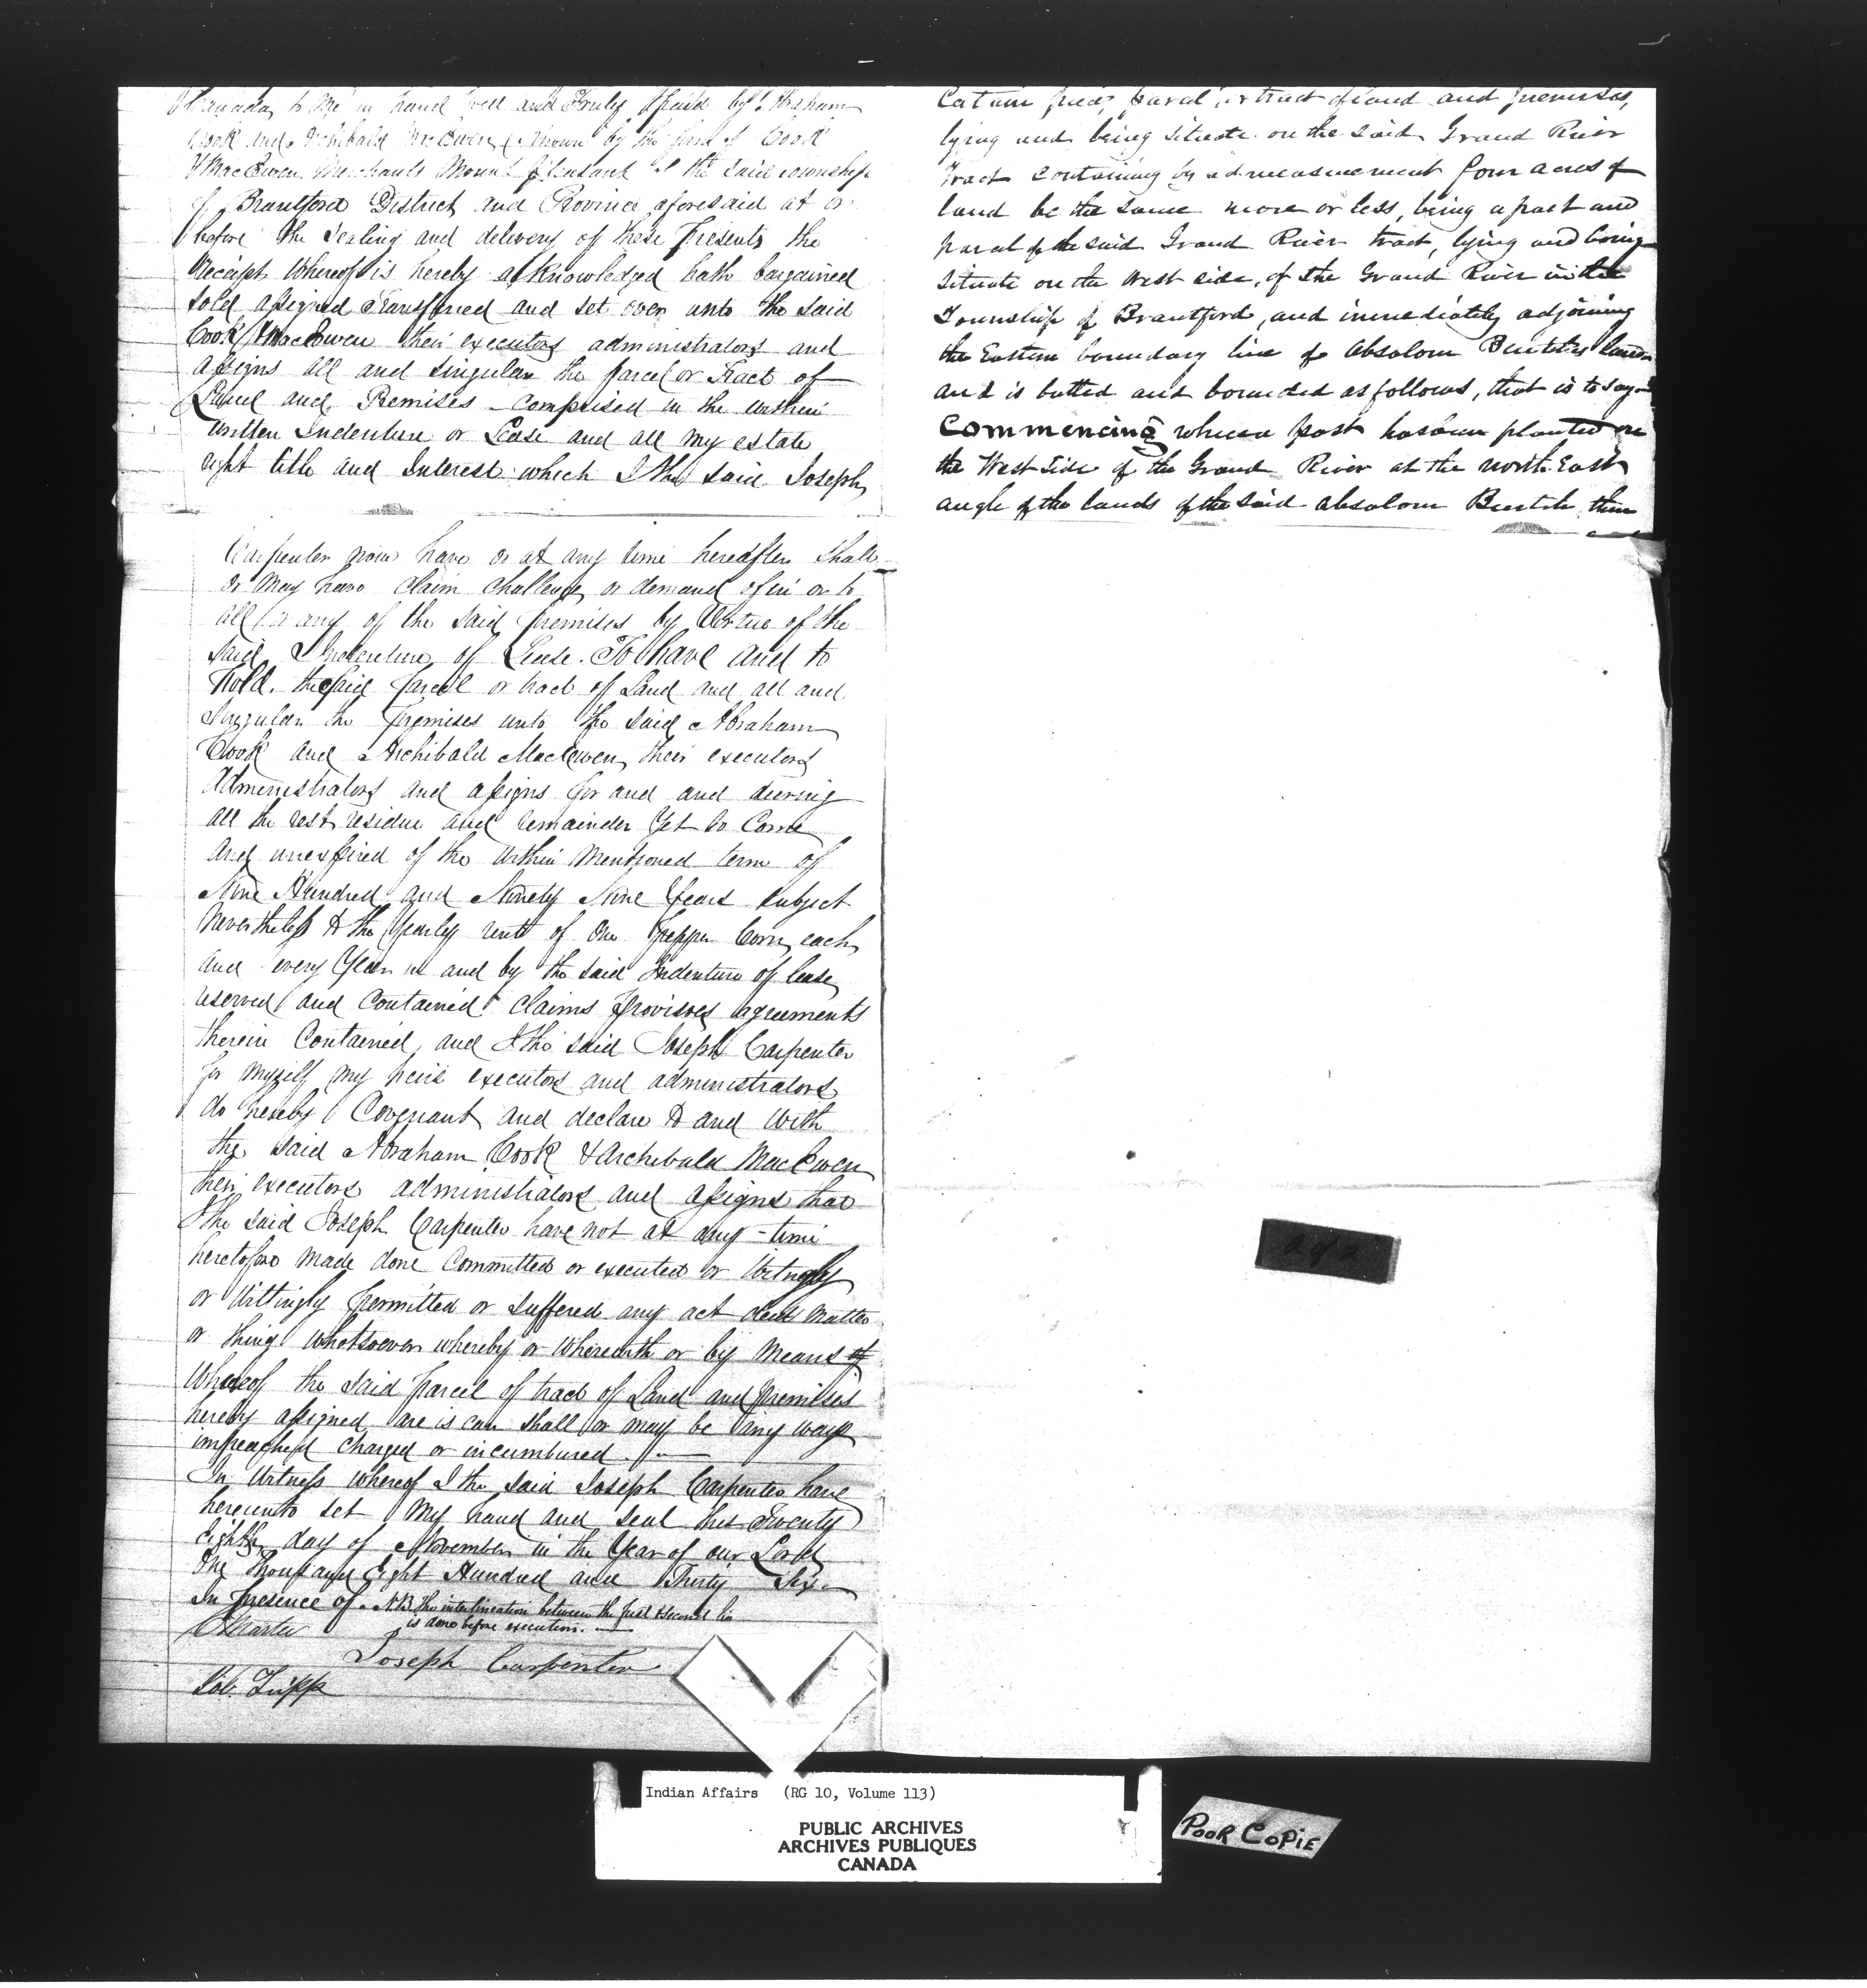 Canada, to me in hand well and Truly paid by Abraham
Cook and Archibald MacEwen (Known by the firm of Cook
& MacEwen Merchants Mount Pleasant of the said township
of Brantford District and Province aforesaid at or
before the Sealing and delivery of these Presents the
Receipt Whereof is hereby acknowledged hath bargained
sold assigned Transferred and set over unto the said
Cook & MacEwen their executors administrators and
assigns All and singular the parcel or Tract of
Land and Premises comprised in the within
written Indenture or Lease and all my estate
right title and Interest which I the said Joseph
Carpenter now have or at any time hereafter shall
or May have claim challenge or demand of in or to
all or any of the said premises by Virtue of the
said Indenture of Lease. To have and to
Hold. the said parcel or tract of Land and all and
singular the premises unto the said Abraham
Cook and Archibald MacEwen, their executors
Administrators and assigns for and and during
all the rest residue and remainder Yet to Come
And unexpired of the within Mentioned term of
Nine Hundred and Ninety Nine Years subject
Nevertheless to the Yearly rent of One Pepper Corn, each
and every Year in and by the said Indenture of lease
reserved and Contained Claims Provisoes agreements
therein Contained, and I the said Joseph Carpenter
for Myself my heirs executors and administrators
do hereby Covenant and declare to and With
the said Abraham Cook & Archibald MacEwen
their executors administrators and assigns that
I the said Joseph Carpenter have not at any time
heretofore Made done Committed or executed or Witingly
or Wittingly permitted or suffered any act deed Matter
or thing Whatsoever whereby or Wherewith or by Means of
Whereof the said parcel of tract of Land and Premises
hereby assigned are is can shall or may be any ways
impeached Charged or incumbured.
In Witness whereof I the said Joseph Carpenter have
hereunto set My hand and seal this Twenty
Eighth day of November in the Year of our Lord
One Thousand Eight Hundred and Thirty Six
In presence of. N.B. the interlineation between the first & second line
is done before execution.
Joseph Carpenter
Job. Tripp
Certain piece, parcel, or tract of land and premises,
lying and being situate on the said Grand River
Tract containing by admeasurement four acres of
land be the same more or less, being a part and
parcel of the said Grand River tract, lying and being
situate on the West side, of the Grand River in the
Township of Brantford, and immediately adjoining
the Eastern boundary line of Absolom Burtches lands
and is butted and bounded as follows, that is to say
Commencing where a post has been planted on
the West Side of the Grand River at the North East
angle of the lands of the said Absolom Burtch then
2 of 2
Indian Affairs (RG 10, Volume 113)
PUBLIC ARCHIVES
ARCHIVES PUBLIQUES
CANADA
POOR COPIE